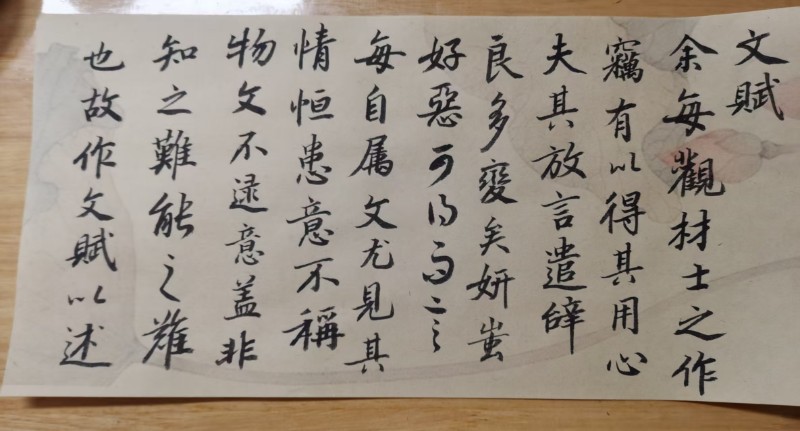 文賦
余每觀材士之作
竊有以得其用心
夫其放言遣辭
良多變矣妍蚩
好惡可得而言
每自属文尤見其
情恒患意不稱
物文不逮意盖非
知之難能之難
也故作文賦以述